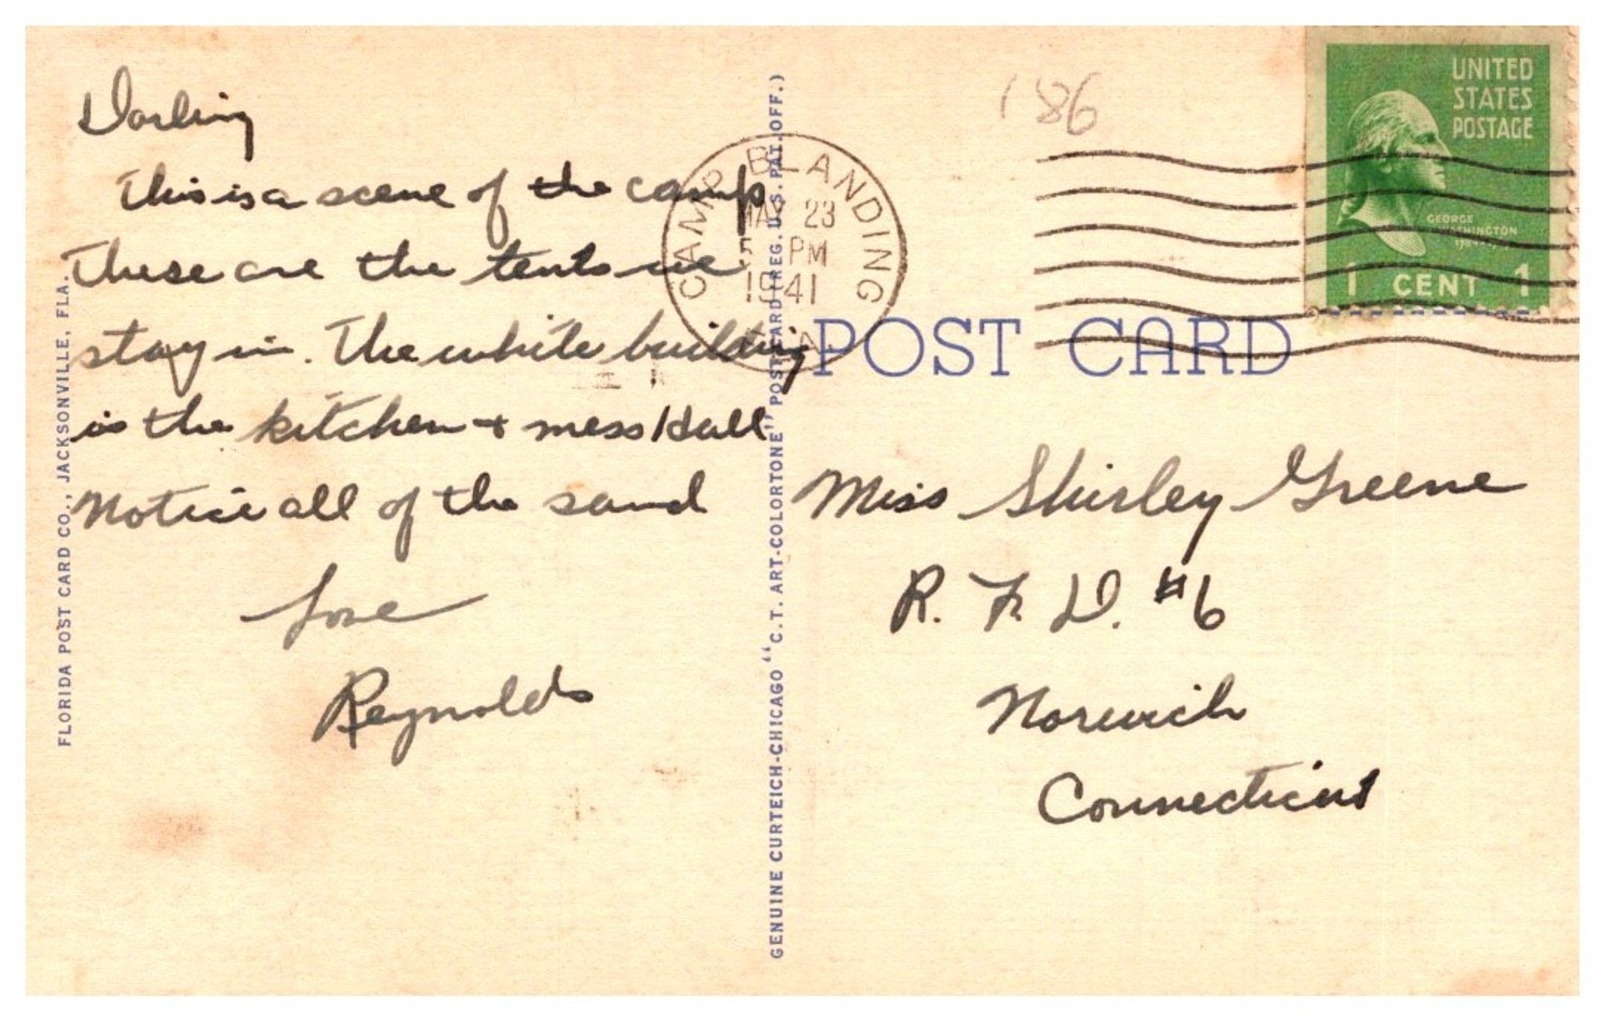 Darling
This is a scene of the camp
These are the tents we
stay in. The white building
is the kitchen + mess Hall
Notice all of the sand
Love
Reynolds
FLORIDA POST CARD CO., JACKSONVILLE, FLA.
GENUINE CURTEICH-CHICAGO "C.T. ART-COLORTONE" POST CARD (REG. U.S. PAT. OFF.)
186
CAMP BLANDING
MAY 23
PM
1941
UNITED
STATES
POSTAGE
GEORGE
WASHINGTON
1 CENT 1
POST CARD
Miss Shirley Greene
R. F. D. #6
Norwich
Connecticut